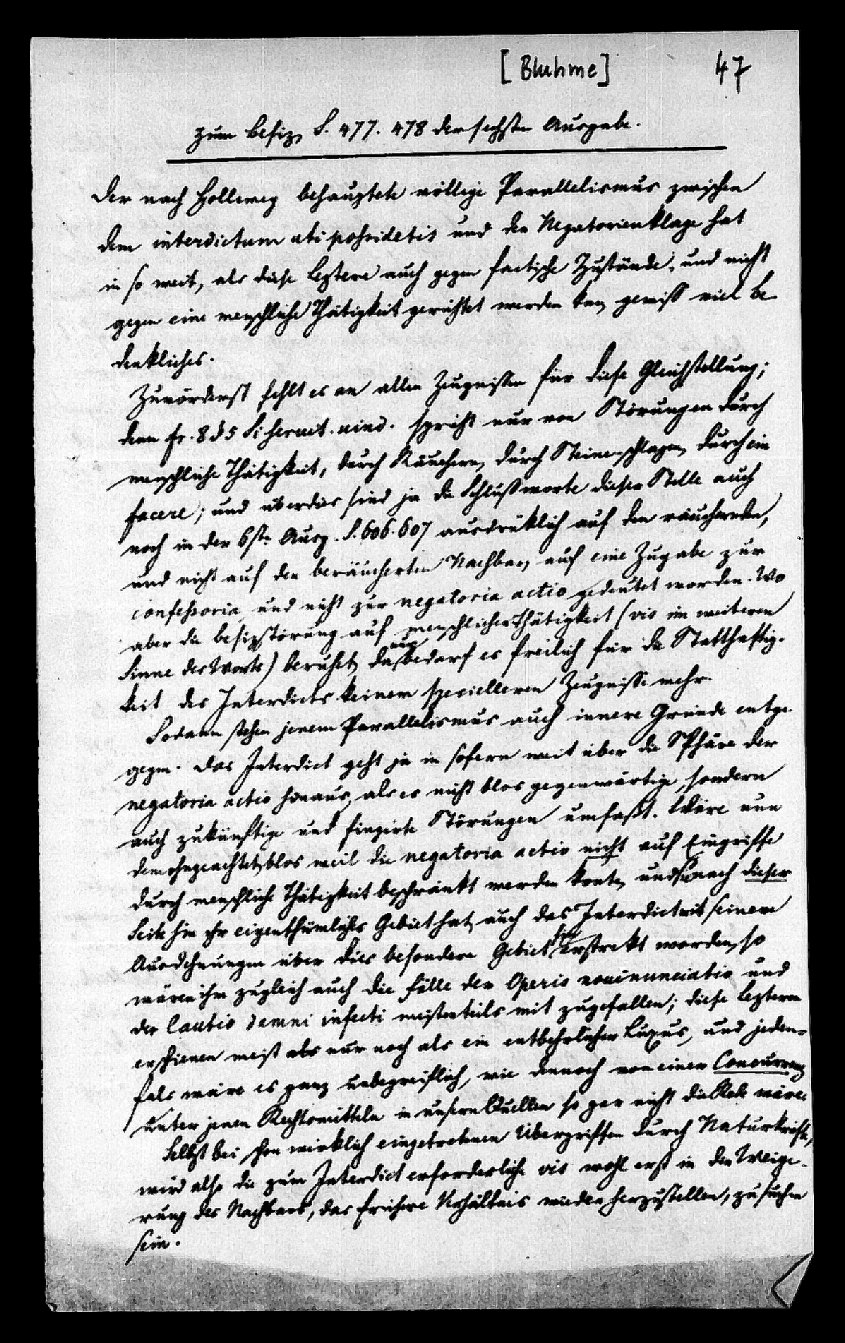 [Bluhme] 47
Zum Besiz, S. 477. 478 der sechsten Ausgabe.
Der nach Hollweg behauptete völlige Parallelismus zwischen
dem interdictum uti possidetis und der Negatorienklage hat
in so weit, als diese leztere auch gegen factische Zustände, und nicht
gegen eine menschliche Thätigkeit gerichtet werden kan, gewiss viel be
denkliches.
Zuvörderst fehlt es an allen Zeugnissen für diese Gleichstellung;
denn fr. 8 §5 Si servit. vind. spricht nur von Störungen durch
menschliche Thätigkeit, durch Räuchern, durch Steinschlagen, durch ein
facere; und überdies sind ja die Schlußworte dieser Stelle auch
noch in der 6ten Ausg. S. 606. 607 ausdrüklich auf den räuchernden,
und nicht auf den beräucherten Nachbar, auf eine Zugabe zur
confessoria und nicht zur negatoria actio gedeutet worden. Wo
aber die Besizstörung auf menschlicher Thätigkeit (vis im weiteren
Sinne des Worts) beruhet, da bedarf es freilich für die Statthaftig-
keit des Interdicts keiner specielleren Zeugnisse mehr
Sodann stehen jenem Parallelismus auch innere Gründe entge
gegen. Das Interdict geht ja in sofern weit über die Sphäre der
negatoria actio hinaus, als es nicht blos gegenwärtige, sondern
auch zukünftige und fingirte Störungen umfaßt. Wäre nun
demohngeachtet, blos weil die negatoria actio nicht auf Eingriffe
durch menschliche Thätigkeit beschränkt werden konte, und nach dieser
Seite hin ihr eigenthümliches Gebiet hat, auch das Interdict mit seinen
Ausdehnungen über dies besondere Gebiet erstrekt worden, so
wären ihm zugleich auch die Fälle der Operis novi nunciatio und
der Cautio damni infecti meistenteils mit zugefallen; diese leztern
erschienen meist als nur noch als ein entbehrlicher Luxus, und jeden-
fals wäre es ganz unbegreiflich, wie dennoch von einer Concurrenz
unter jenen Rechtsmitteln in unsern Quellen so gar nicht die Rede wäre.
Selbst bei schon wirklich eingetretenen Übergriffen durch Naturkräfte,
wird also die zum Interdict erforderliche vis wohl erst in der Weige-
rung des Nachbars, das frühere Verhältnis wieder herzustellen, zu suchen
sein.